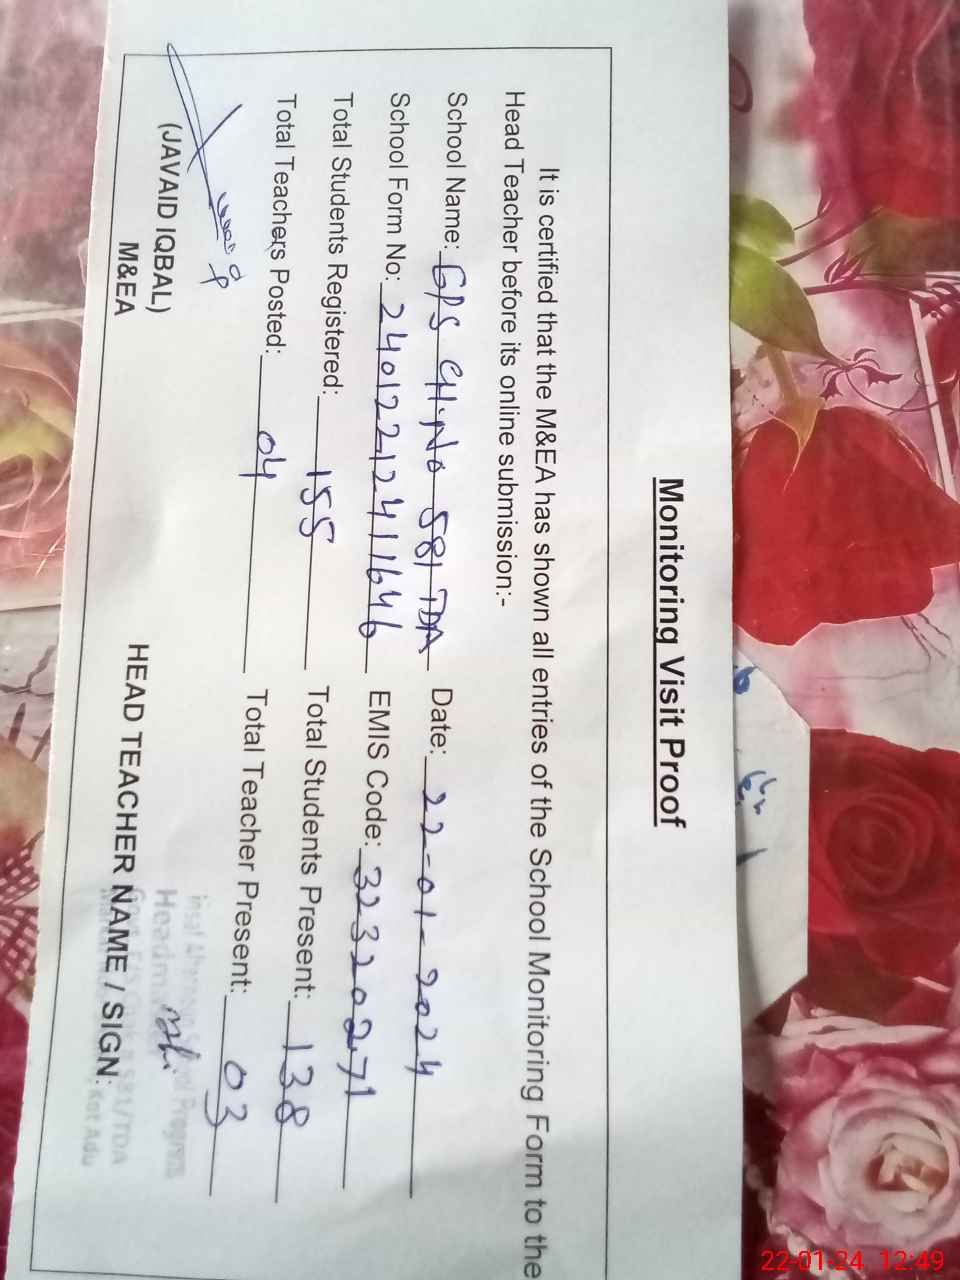 Monitoring Visit Proof
It is certified that the M&EA has shown all entries of the School Monitoring Form to the
Head Teacher before its online submission:-
School Name: GPS CH.No 581 TDA Date: 22-01-2024
School Form No: 24012212411646 EMIS Code: 32320271
Total Students Registered: 155 Total Students Present: 138
Total Teachers Posted: 04 Total Teacher Present: 03
(JAVAID IQBAL)
M&EA
HEAD TEACHER NAME / SIGN:
School Program
581/TDA
Kot Adu
22-01-24 12:49